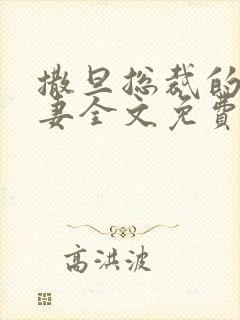 撒旦总裁的
妻全文免費
高洪波